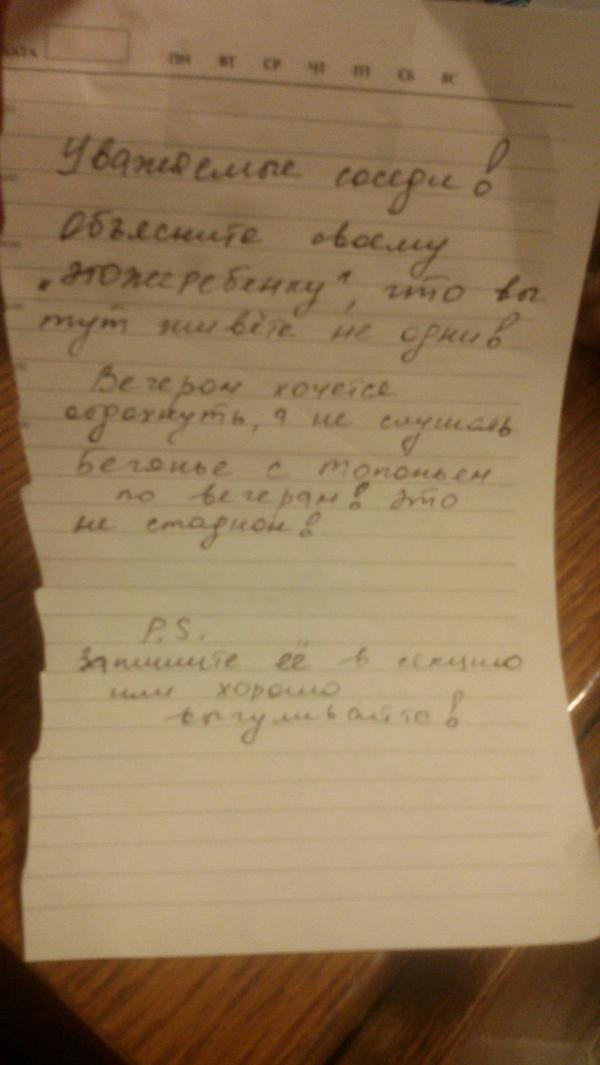 ДАТА ПН ВТ СР ЧТ ПТ СБ ВС
Уважаемые соседи!
Объясните своему
"этожеребенку", что вы
тут живёте не одни!
Вечером хочется
отдохнуть, а не слушать
беганье с топоньем
по вечерам! Это
не стадион!
P.S.
Запишите её в секцию
или хорошо
выгуливайте!